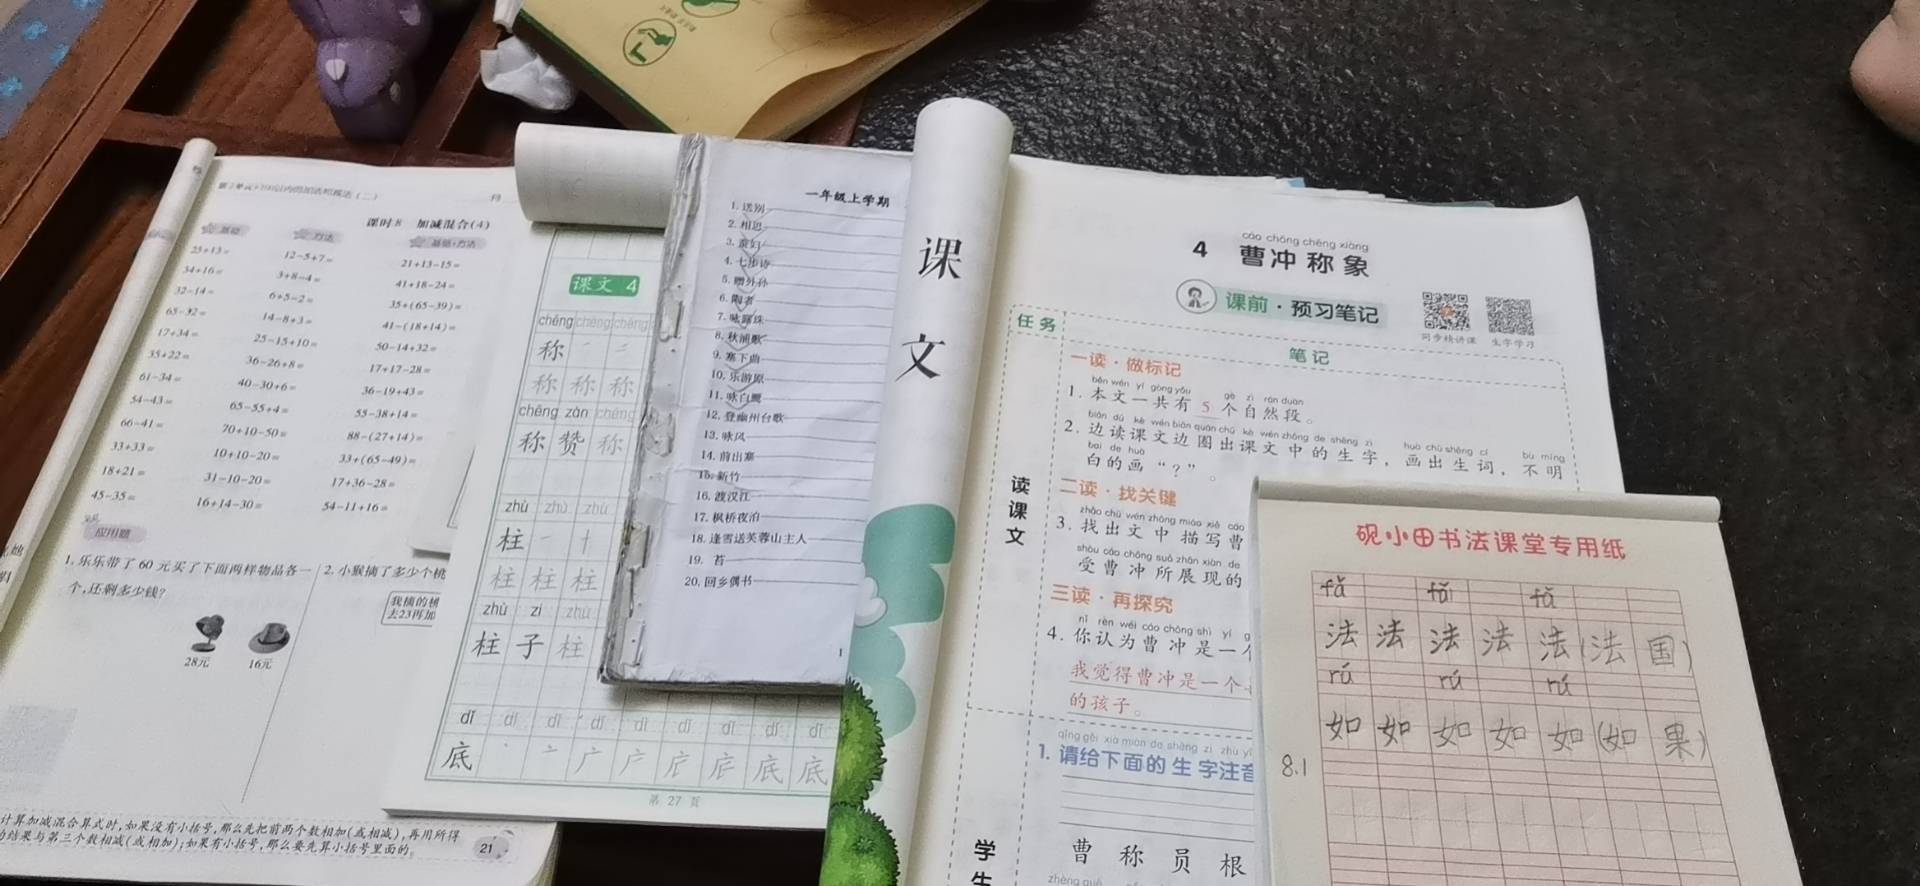 课时8 加减混合(4)
基础 方法 基础+方法
25+13= 12-5+7= 21+13-15=
34+16= 3+8-4= 41+18-24=
32-14= 6+5-2= 35+(65-39)=
65-32= 14-8+3= 41-(18+14)=
17+34= 25-15+10= 50-14+32=
35+22= 36-26+8= 17+17-28=
61-34= 40-30+6= 36-19+43=
54-43= 65-55+4= 55-38+14=
66-41= 70+10-50= 88-(27+14)=
33+33= 10+10-20= 33+(65-49)=
18+21= 31-10-20= 17+36-28=
45-35= 16+14-30= 54-11+16=
应用题
1.乐乐带了60元买了下面两样物品各一
个,还剩多少钱?
28元 16元
2.小猴摘了多少个桃
我摘的桃
去23再加
计算加减混合算式时,如果没有小括号,那么先把前两个数相加(或相减),再用所得
的结果与第三个数相减(或相加);如果有小括号,那么要先算小括号里面的。
21
课文 4
chēng chēng chēng
称
称 称 称
chēng zàn chēng
称 赞 称
zhù zhù zhù
柱
柱 柱 柱
zhù zi zhù
柱 子 柱
dǐ dǐ dǐ dǐ dǐ dǐ dǐ dǐ
底 底 底
第 27 页
一年级上学期
1.送别
2.相思
4.七步诗
5.赠外孙
6.陶者
7.咏露珠
8.秋浦歌
9.塞下曲
10.乐游原
11.咏白鹭
12.登幽州台歌
13.咏风
14.前出塞
15.新竹
16.渡汉江
17.枫桥夜泊
18.逢雪送芙蓉山主人
19.苔
20.回乡偶书
1
课文
cáo chōng chēng xiàng
4 曹冲称象
课前·预习笔记
同步精讲课 生字学习
任务
笔记
读课文
一读·做标记
běn wén yí gòng yǒu gè zì rán duàn
1.本文一共有 5 个自然段。
biān dú kè wén biān quān chū kè wén zhōng de shēng zì huà chū shēng cí bù míng
2.边读课文边圈出课文中的生字,画出生词,不明
bai de huà
白的画“?”。
二读·找关键
zhǎo chū wén zhōng miáo xiě cáo
3.找出文中描写曹
shòu cáo chōng suǒ zhǎn xiàn de
受曹冲所展现的
三读·再探究
nǐ rèn wéi cáo chōng shì yí g
4.你认为曹冲是一个
我觉得曹冲是一个
的孩子。
qǐng gěi xià miàn de shēng zì zhù yī
1.请给下面的生字注音
曹 称 员 根
学生
砚小田书法课堂专用纸
fǎ fǎ fǎ
法 法 法 法 法(法 国)
rú rú rú
如 如 如 如 如(如 果)
8.1